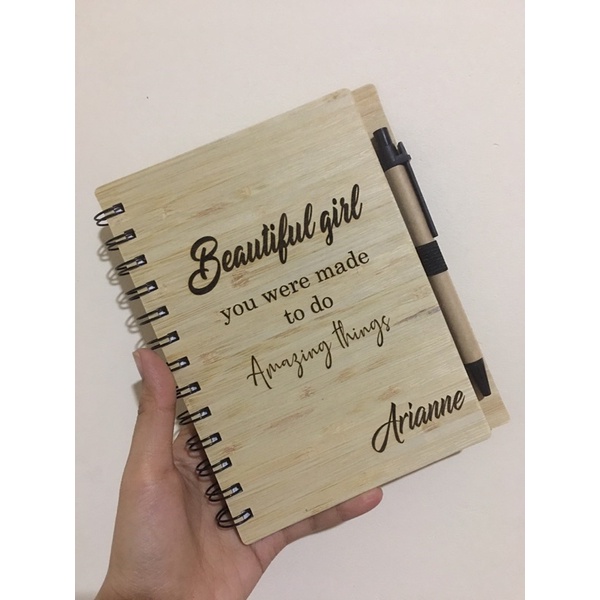 Beautiful girl
you were made
to do
Amazing things
Arianne